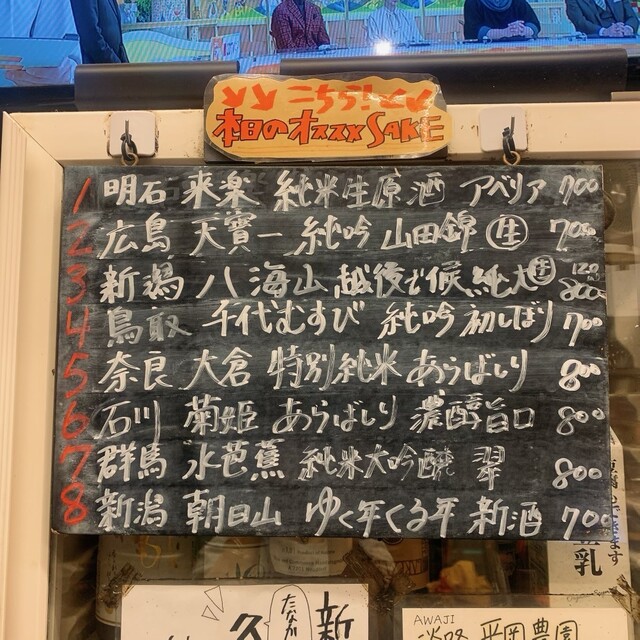 こちら!
本日のオススメSAKE
1 明石 来楽 純米生原酒 アベリア 700
2 広島 天寶一 純吟 山田錦 生 700
3 新潟 八海山 越後で候 純大 生 120ml 800
4 鳥取 千代むすび 純吟 初しぼり 700
5 奈良 大倉 特別純米 あらばしり 800
6 石川 菊姫 あらばしり 濃醇旨口 800
7 群馬 水芭蕉 純米大吟醸 翠 800
8 新潟 朝日山 ゆく年くる年 新酒 700
乳
たなか
新
久
AWAJI
淡路 平岡農園